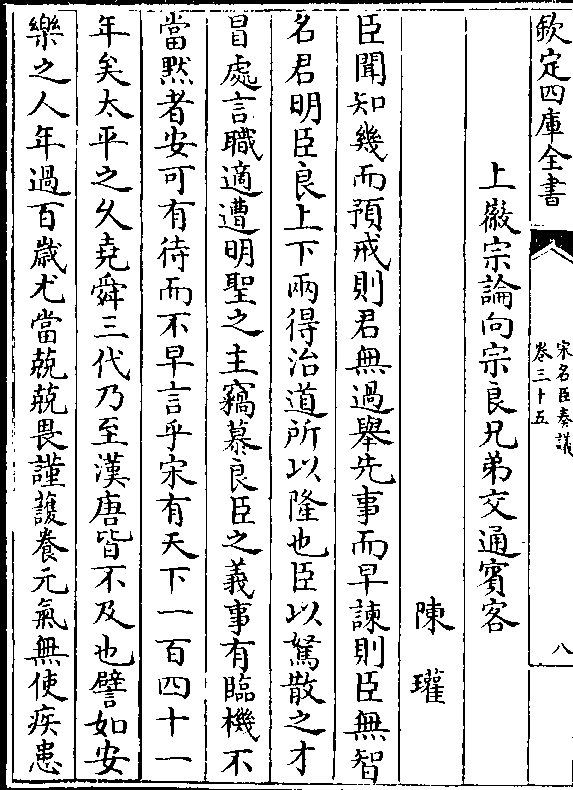 欽定四庫全書
宋名臣奏議
卷三十五
八
上徽宗論向宗良兄弟交通賓客
陳瓘
臣聞知幾而預戒則君無過舉先事而早諫則臣無智
名君明臣良上下兩得治道所以隆也臣以駑散之才
冒處言職適遭明聖之主竊慕良臣之義事有臨機不
當黙者安可有待而不早言乎宋有天下一百四十一
年矣太平之久堯舜三代乃至漢唐皆不及也譬如安
樂之人年過百歳尤當兢兢畏謹護養元氣無使疾患